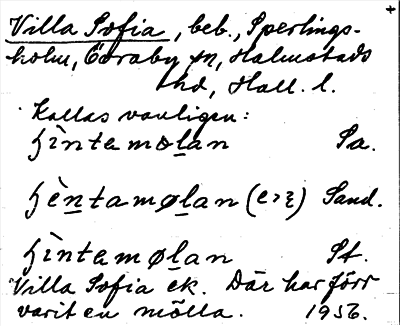 +
Villa Sofia, beb., Sperlings-
holm, Övraby sn, Halmstads
hd, Hall. l.
Kallas vanligen:
hìntamølan Sa.
hèntamølan (e>ɛ) Sand.
hìntamølan St.
Villa Sofia ek. Där har förr
varit en mölla. 1936.